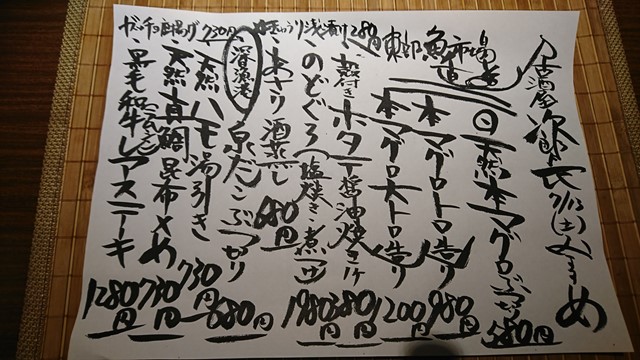 居酒屋 次郎長 7/13(土)
京都魚市場直送
㊐天然本マグロぶつ切り 680円
本マグロトロ造り 980円
本マグロ大トロ造り 1200円
殻付きホタテ醤油焼き1ケ 380円
のどぐろ(塩焼き・煮つけ) 1980円
あさり酒蒸し 680円
深漁港 泉だこぶつ切り 680円
天然ハモ湯引き 730円
天然真鯛昆布〆め 730円
黒毛和牛レアステーキ 1280円
きゅうり浅漬け 280円
唐揚げ 730円